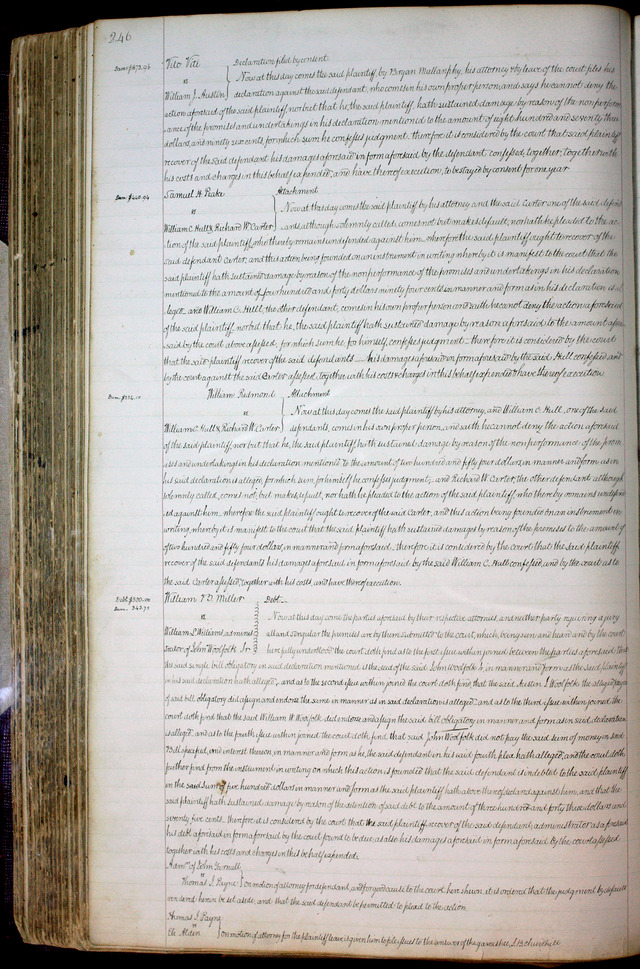 246
Dam $873.96 Vito Viti } Declaration filed by consent.
vs Now at this day comes the said plaintiff, by Bryan Mullanphy, his attorney & by leave of the court files his
William J. Austin declaration against the said defendant, who comes in his own proper person and says he cannot deny the
action aforesaid of the said plaintiff, nor but that he, the said plaintiff, hath sustained damage by reason of the non perform
ance of the promises and undertakings in his declaration mentioned to the amount of eight hundred and seventy three
dollars, and ninety six cents, for which sum he confesses judgment. therefore it is considered by the court that said plaintiff
recover of the said defendant his damages aforesaid in form aforesaid by the defendant confessed, together, together with
his costs and charges in this behalf expended, and have thereof execution, to be stayed by consent for one year
Dam $440.94 Samuel H. Peake } Attachment
vs Now at this day comes the said plaintiff by his attorney and the said Carter one of the said defend
William C. Hull & Richard W. Carter ants although solemnly called, comes not but makes default, nor hath he pleaded to the ac
tion of the said plaintiff, who thereby remains undefended against him, wherefore the said plaintiff ought to recover of the
said defendant Carter, and this action being founded on an instrument in writing whereby it is manifest to the court that the
said plaintiff hath sustained damage by reason of the nonperformance of the promises and undertakings in his declaration
mentioned to the amount of four hundred and forty dollars ninety four cents in manner and form as in his declaration is al
leged. and William C. Hull, the other defendant, comes in his own proper person and saith he cannot deny the action aforesaid
of the said plaintiff, nor but that he, the said plaintiff hath sustained damage by reason aforesaid to the amount afore
said by the court above assessed, for which sum he for himself, confesses judgment: therefore it is considered by the court
that the said plaintiff recover of the said defendants his damages aforesaid in form aforesaid by the said Hull confessed and
by the court against the said Carter assessed, together with his costs & charges in this behalf expended & have thereof execution
Dam $254.00 William Redmond } Attachment
vs Now at this day comes the said plaintiff by his attorney, and William C. Hull, one of the said
William C. Hull & Richard W. Carter defendants, comes in his own proper person, and saith he cannot deny the action aforesaid
of the said plaintiff, nor but that he, the said plaintiff hath sustained damage by reason of the non performance of the prom
ises and undertakings in his declaration mentioned to the amount of two hundred and fifty four dollars, in manner and form as in
his said declaration is alleged, for which sum, for himself he confesses judgment; and Richard W. Carter, the other defendant although
solemnly called, comes not, but makes default, nor hath he pleaded to the action of the said plaintiff, who thereby remains undefend
ed against him, wherefore the said plaintiff ought to recover of the said Carter, and this action being founded on an instrument in
writing, whereby it is manifest to the court that the said plaintiff hath sustained damages by reason of the premises to the amount of
of two hundred and fifty four dollars, in manner and form aforesaid, therefore it is considered by the court that the said plaintiff
recover of the said defendants his damages aforesaid in form aforesaid by the said William C. Hull confessed, and by the court as to
the said Carter assessed, together with his costs, and have thereof execution.
Debt $500.00 William T. D. Miller } Debt
Dam 343.75 vs Now at this day come the parties aforesaid by their respective attornies, and neither party requiring a jury
William L. Williams, adminis all and singular the premises are by them submitted to the court, which, being seen and heard and by the court
trator of John Woolfolk Jr have fully understood the court doth find as to the first issue within joined between the parties aforesaid, that
the said single bill obligatory in said declaration mentioned is the deed of the said John Woolfolk Jr. in manner and form as the said plaintiff
in his said declaration hath alleged; and as to the second issue within joined the court doth find, that the said Austin J. Woolfolk the alleged payee
of said bill obligatory did assign and endorse the same in manner as in said declaration is alleged: and as to the third issue within joined, the
court doth find that the said William W. Woolfolk did endorse and assign the said bill obligatory in manner and form as in said declaration
is alleged: and as to the fourth issue within joined the court doth find, that said John Woolfolk did not pay the said sum of money in said
Bill specified, and interest thereon, in manner and form as he, the said defendant in his said fourth plea hath alleged, and the court doth
further find from the instrument in writing on which this action is founded that the said defendant is indebted to the said plaintiff
in the said sum of five hundred dollars in manner and form as the said plaintiff hath above thereof declared against him, and that the
said plaintiff hath sustained damage by reason of the detention of said debt to the amount of three hundred and forty three dollars and
seventy five cents. therefore it is considered by the court that the said plaintiff recover of the said defendant, administrator as aforesaid
his debt aforesaid in form aforesaid by the court found to be due, as also his damages aforesaid in form aforesaid by the court assessed
together with his costs and charges in this behalf expended.
Admr. of John Gurnell
vs
Thomas J. Payne } on motion of attorney for defendant, and for good cause to the court here shewn, it is ordered that the judgment by default
rendered herein be set aside, and that the said defendant be permitted to plead to the action
Thomas J. Payne
vs
Eli Alden } on motion of attorney for the plaintiff leave is given him to file issues to the answer of the garnishee,